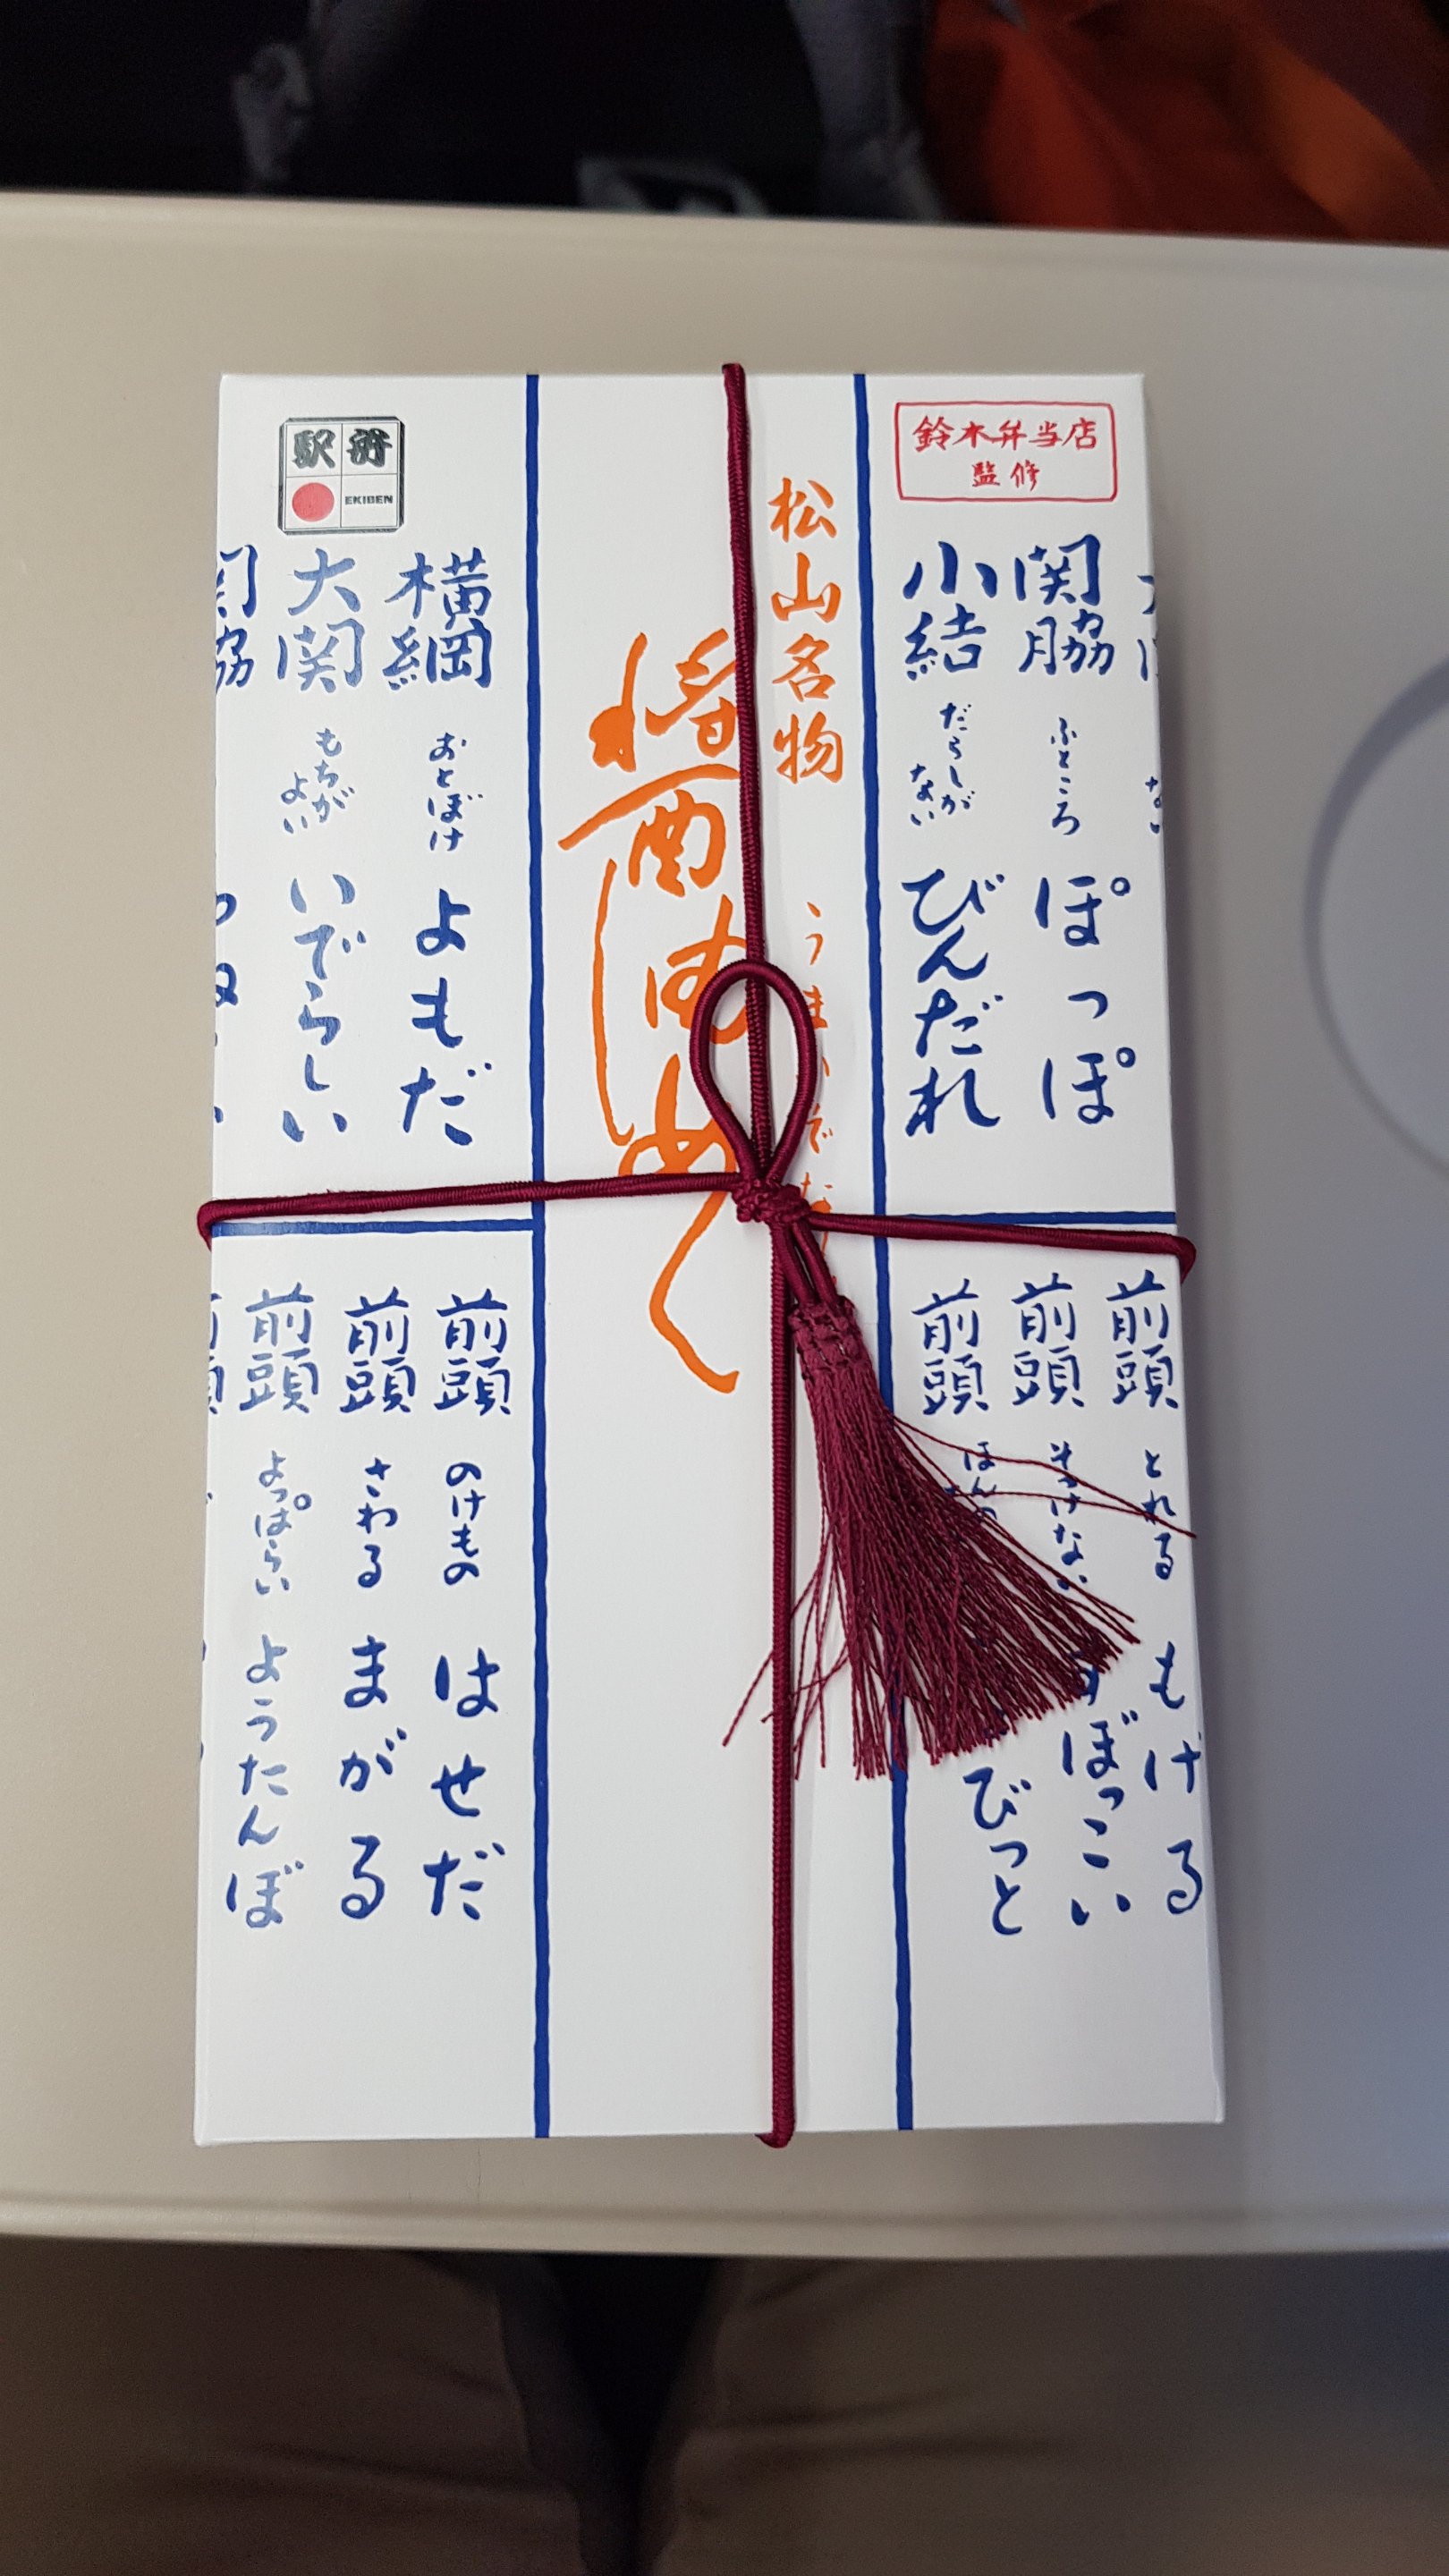 鈴木弁当店
監修
関脇 ふところ ぽっぽ
小結 だらしがない びんだれ
前頭 とれる もげる
前頭 そっけない ぼっこい
前頭 びっと
松山名物
醤油めし
横綱 おとぼけ よもだ
大関 もちがよい いでらしい
関脇
前頭 のけもの はせだ
前頭 さわる まがる
前頭 よっぱらい ようたんぼ
前頭
駅弁
EKIBEN